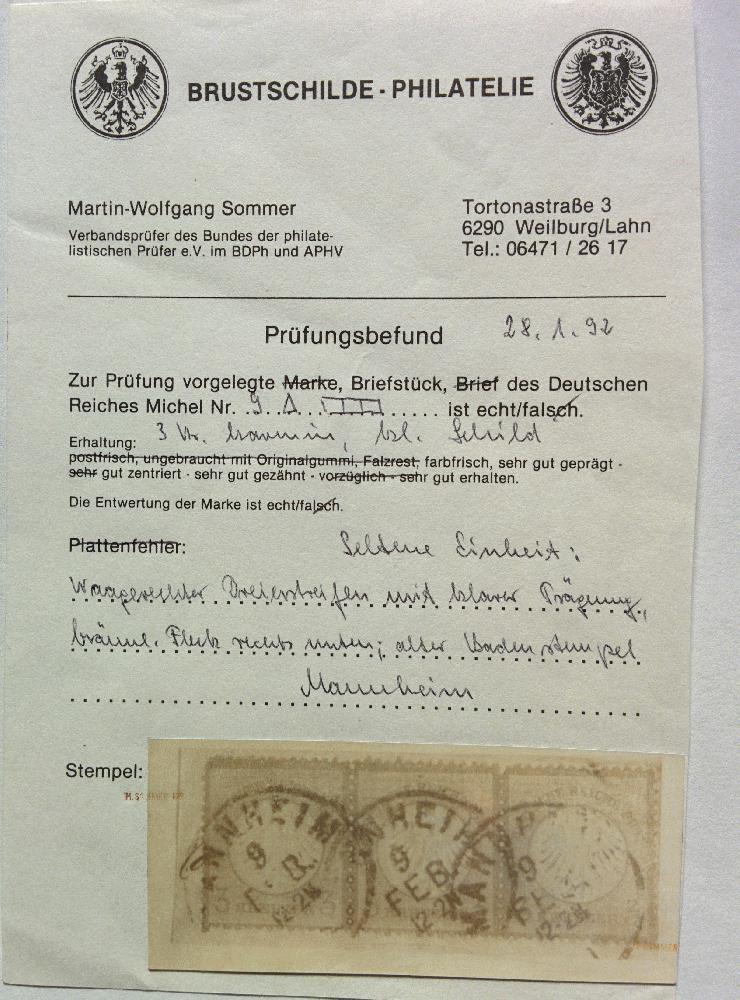 BRUSTSCHILDE - PHILATELIE
Martin-Wolfgang Sommer
Verbandsprüfer des Bundes der philate-
listischen Prüfer e.V. im BDPh und APHV
Tortonastraße 3
6290 Weilburg/Lahn
Tel.: 06471 / 26 17
Prüfungsbefund 28.1.92
Zur Prüfung vorgelegte Marke, Briefstück, Brief des Deutschen
Reiches Michel Nr. 9 ist echt/falsch.
Erhaltung: 3 Kr. karmin, kl. Schild
postfrisch, ungebraucht mit Originalgummi, Falzrest, farbfrisch, sehr gut geprägt -
sehr gut zentriert - sehr gut gezähnt - vorzüglich - sehr gut erhalten.
Die Entwertung der Marke ist echt/falsch.
Plattenfehler: Seltene Einheit:
Waagerechter Dreierstreifen mit klarer Prägung,
bräunl. Fleck rechts unten; alter Badenstempel
Mannheim
Stempel:
ANNHEIM
9
12-2N
NHEIM
9
FEB
12-2N
MANNH
9
12-2N